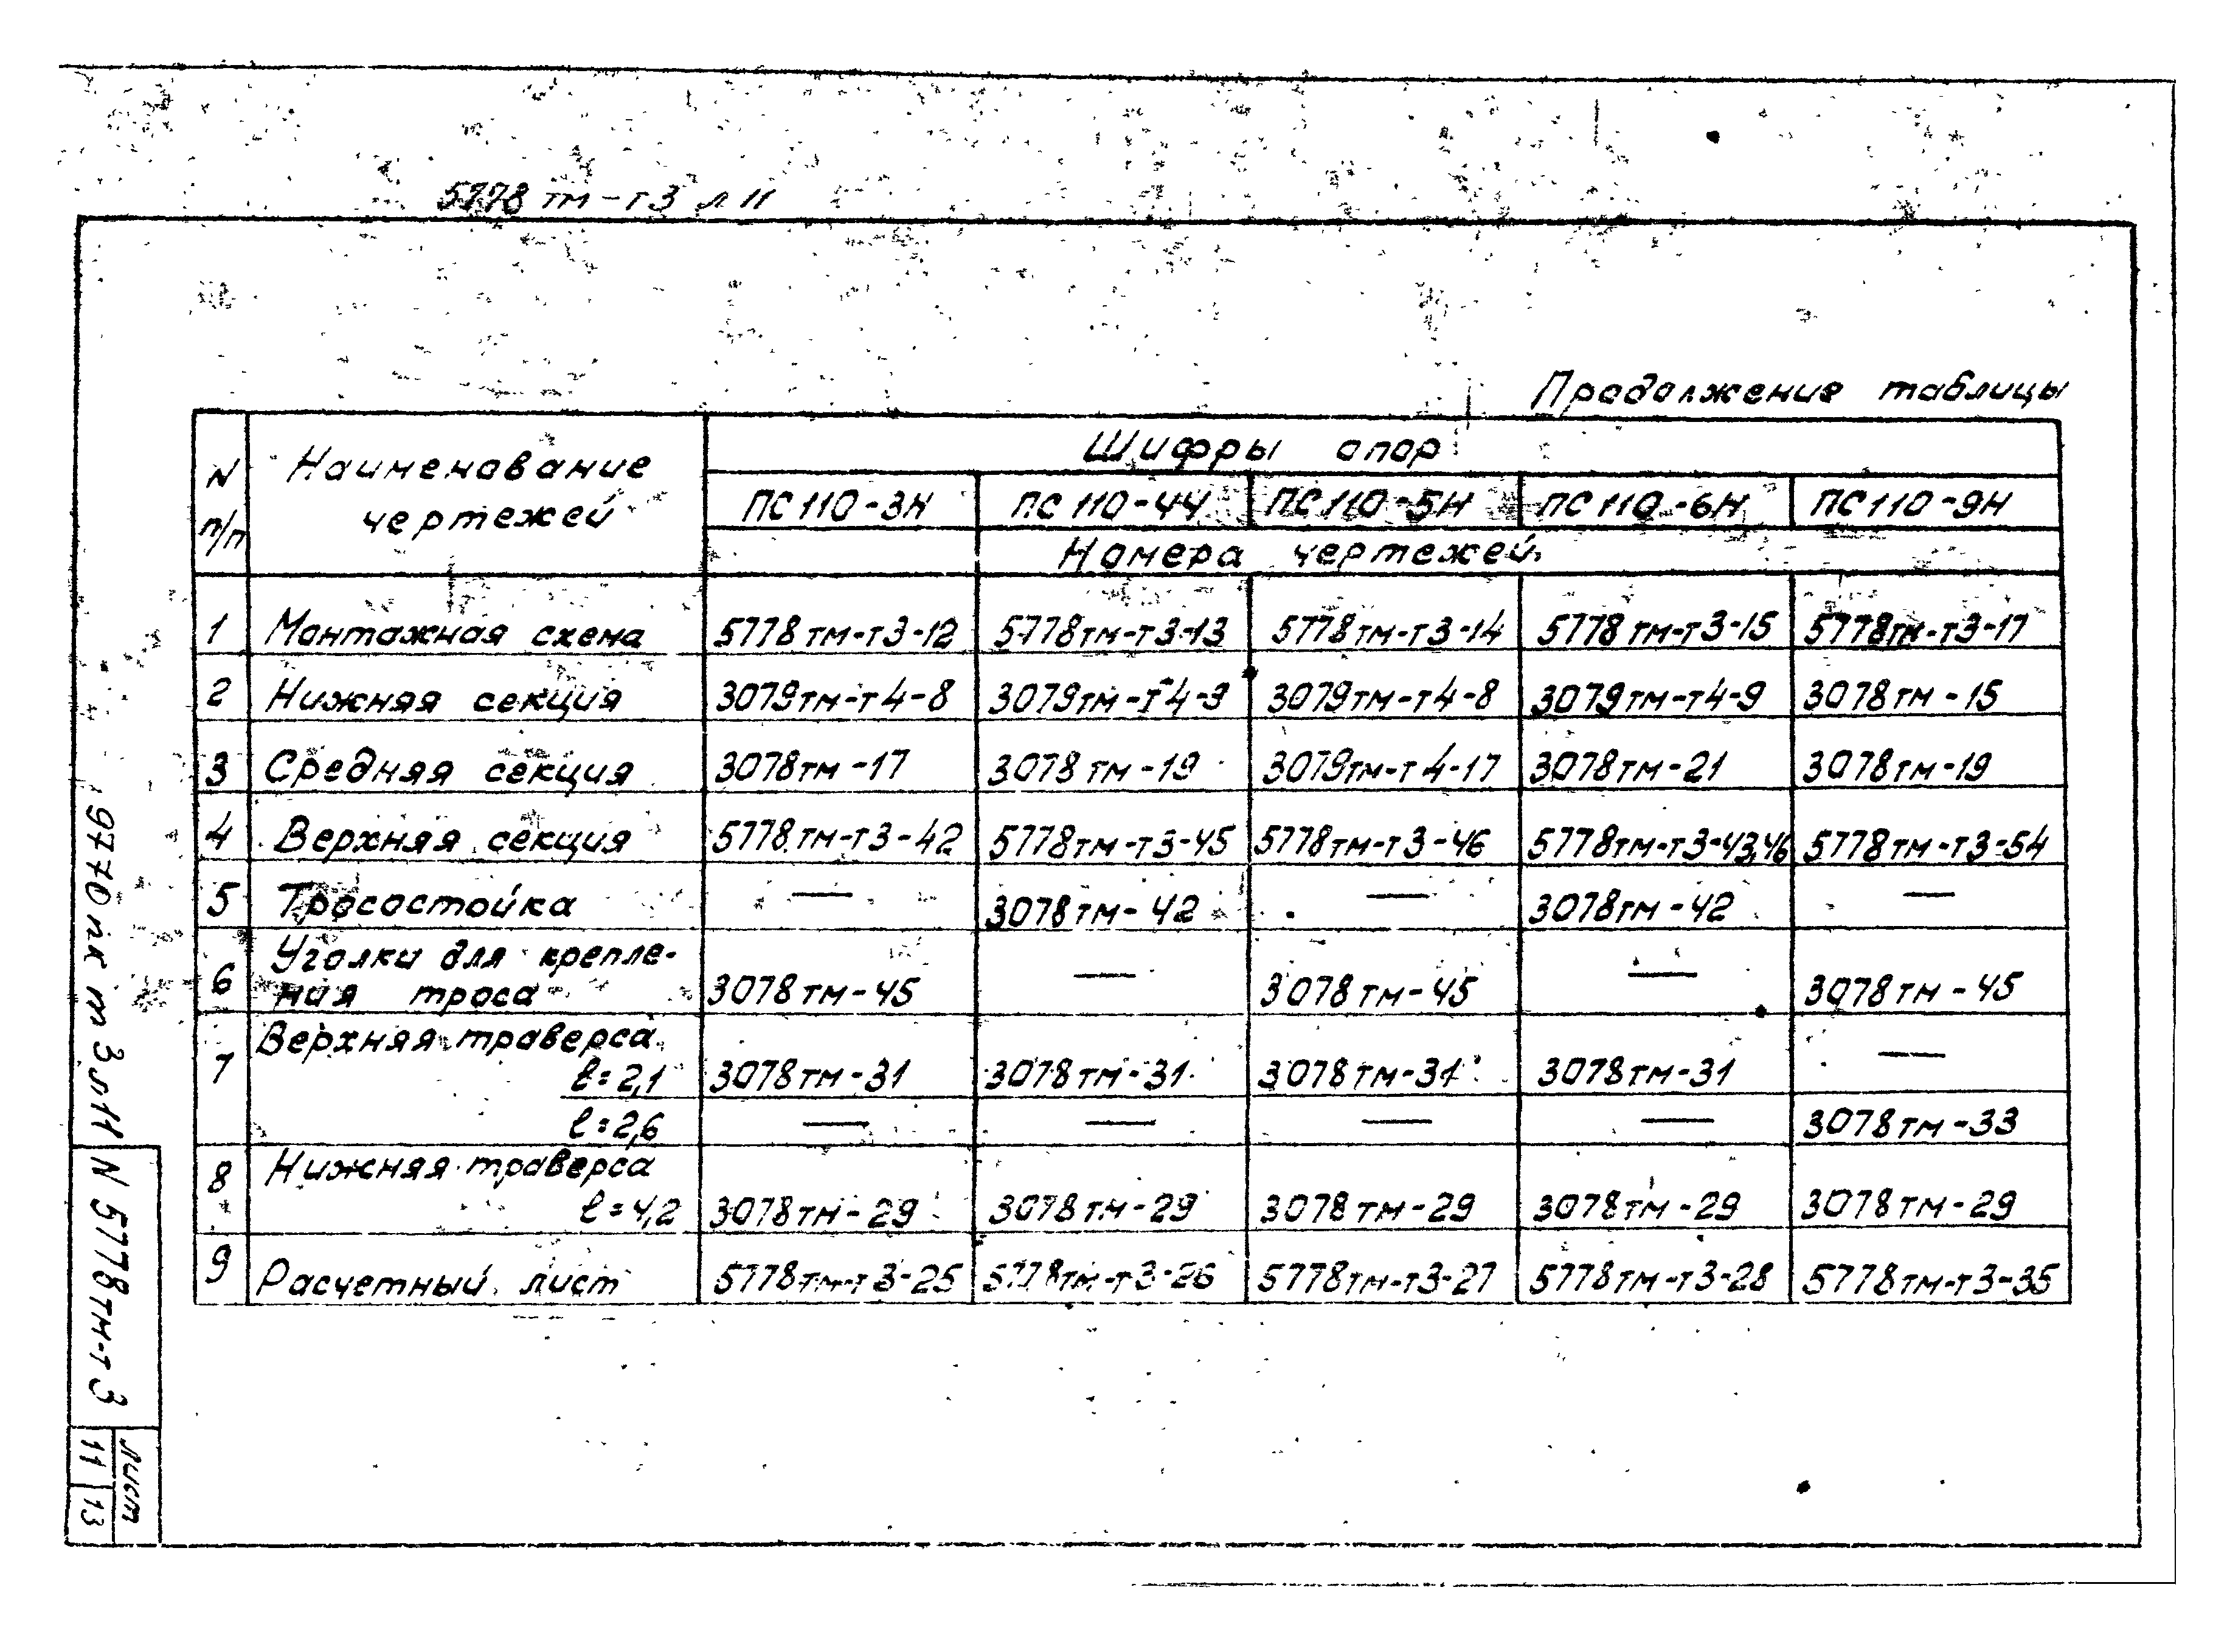 5778 тм-т3 л 11
Продолжение таблицы
N п/п | Наименование чертежей | Шифры опор
ПС 110-3Н | ПС 110-4Ч | ПС 110-5Н | ПС 110-6Н | ПС 110-9Н
Номера чертежей
1 | Монтажная схема | 5778тм-т3-12 | 5778тм-т3-13 | 5778тм-т3-14 | 5778тм-т3-15 | 5778тм-т3-17
2 | Нижняя секция | 3079тм-т4-8 | 3079тм-т4-9 | 3079тм-т4-8 | 3079тм-т4-9 | 3078тм-15
3 | Средняя секция | 3078тм-17 | 3078тм-19 | 3079тм-т4-17 | 3078тм-21 | 3078тм-19
4 | Верхняя секция | 5778тм-т3-42 | 5778тм-т3-45 | 5778тм-т3-46 | 5778тм-т3-43,46 | 5778тм-т3-54
5 | Тросостойка | — | 3078тм-42 | — | 3078тм-42 | —
6 | Уголки для крепле-
ния троса | 3078тм-45 | — | 3078тм-45 | — | 3078тм-45
7 | Верхняя траверса
ℓ=2,1 | 3078тм-31 | 3078тм-31 | 3078тм-31 | 3078тм-31 | —
ℓ=2,6 | — | — | — | — | 3078тм-33
8 | Нижняя траверса
ℓ=4,2 | 3078тм-29 | 3078тм-29 | 3078тм-29 | 3078тм-29 | 3078тм-29
9 | Расчетный лист | 5778тм-т3-25 | 5778тм-т3-26 | 5778тм-т3-27 | 5778тм-т3-28 | 5778тм-т3-35
9770пк т 3 л.11
N 5778тм-т3
Лист
11 | 13